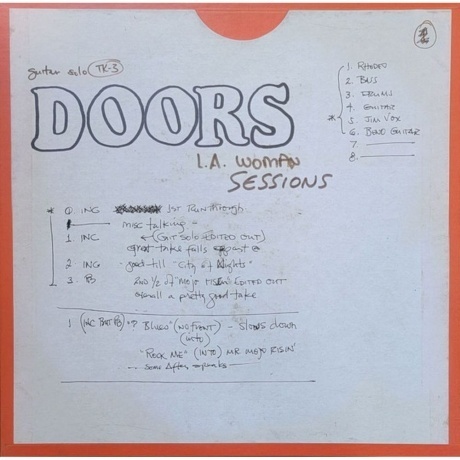 guitar solo TK-3
DOORS
L.A. WOMAN
SESSIONS
1. RHODES
2. BASS
3. DRUMS
4. GUITAR
* 5. JIM VOX
6. BEND GUITAR
7.
8.
* 0. INC 1ST Runthrough
misc talking
1 INC (GIT SOLO EDITED OUT)
great take falls apart @
2 INC good till "City of Nights"
3. B 2ND 1/2 of "MOJO RISIN" EDITED OUT
overall a pretty good take
1 (INC BUT B) "BLUES" (NO FRONT) - Slows down
(into)
"ROCK ME" (INTO) MR MOJO RISIN'
some After